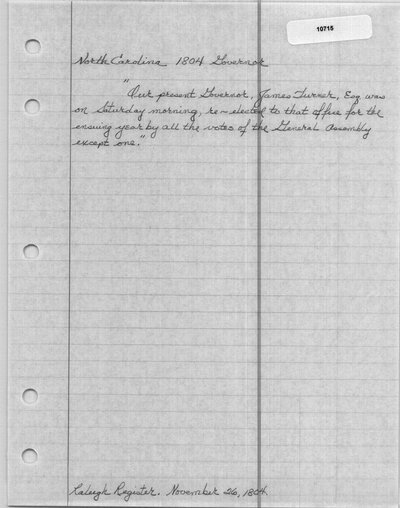 10715
North Carolina 1804 Governor
"Our present Governor, James Turner, Esq was
on Saturday morning, re-elected to that office for the
ensuing year by all the votes of the General Assembly
except one."
Raleigh Register. November 26, 1804